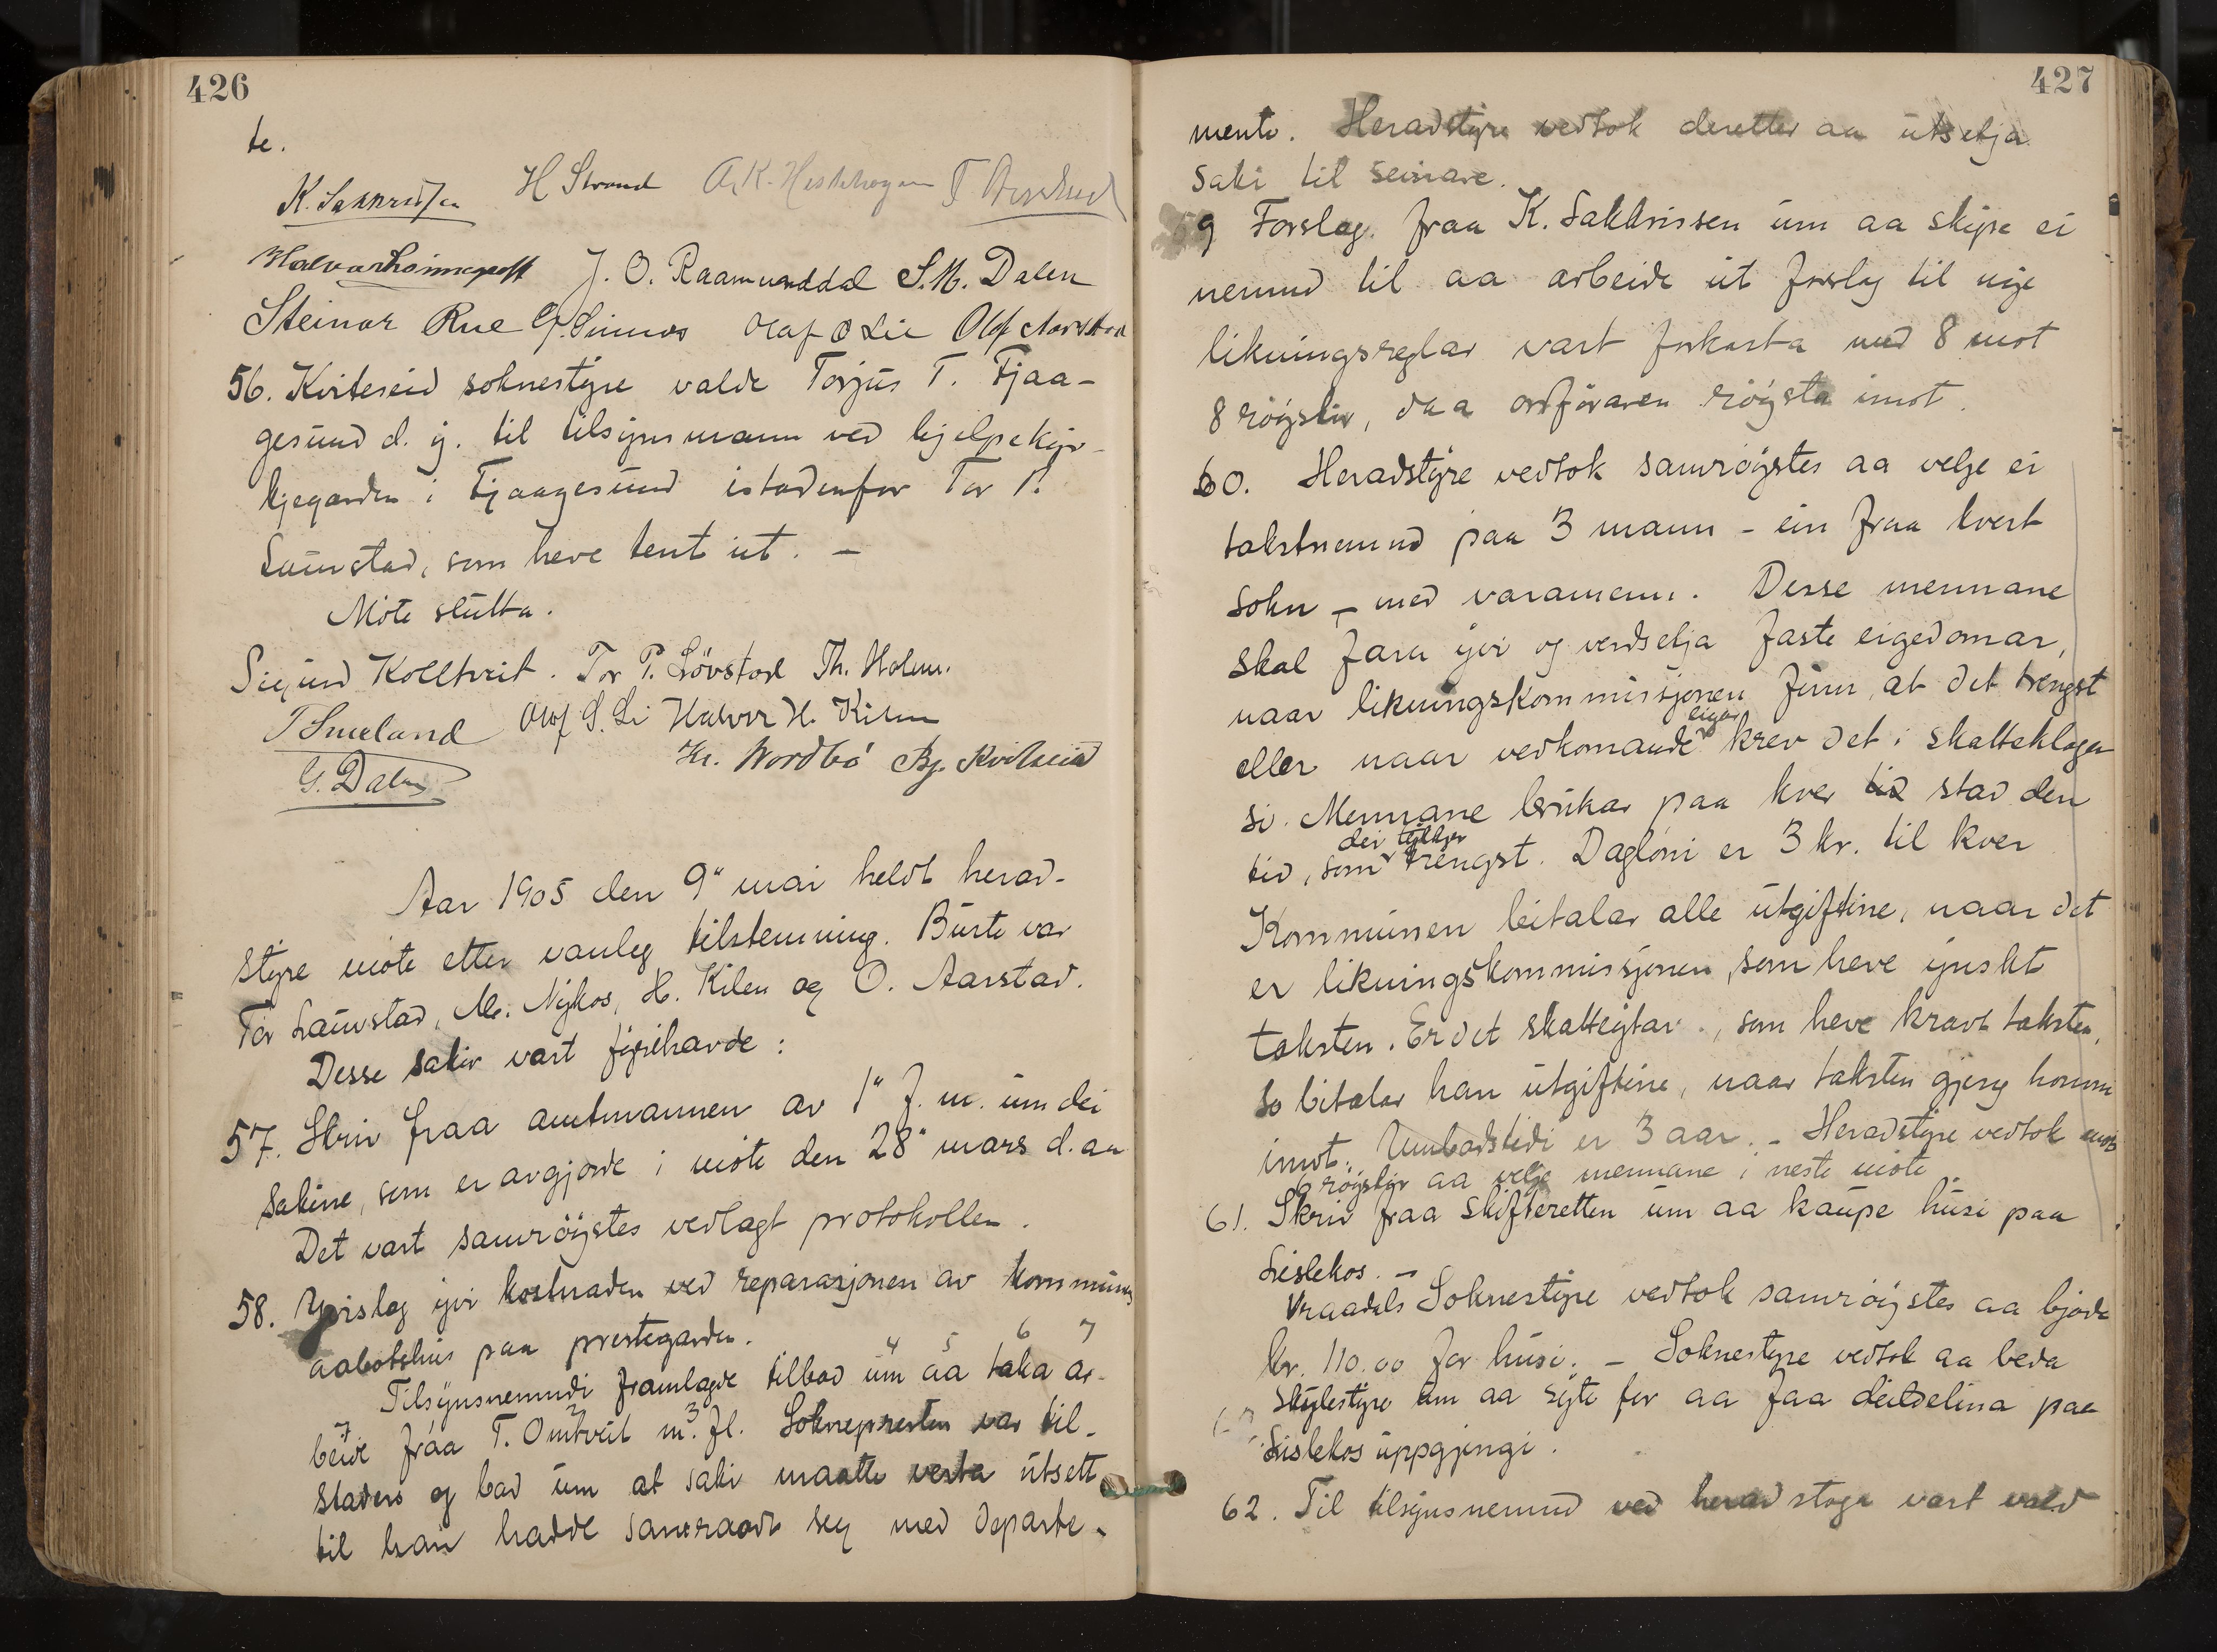 426
te.
K. Sakkrissen H Strand A. K. Heskhogen T
J. O. Raamunddal S. M. Dalen
Steinar Rue G. Sinnes Olaf O Lie Olaf Aarstad
56. Kviteseid soknestyre valde Torjus T. Fjaa-
gesund d. y. til tilsynsmann ved hjelpekyr-
kjegarden i Fjaagesund istadenfor Tor P.
Lauvstad, som heve tent ut. –
Møte slutta.
Sigund Kolltveit. Tor P. Lövstad Th. Holm.
T Smeland Olaf S. Li Halvor H. Kilen
G. Dalen Kr. Nordbö Bj. Kviteseid
Aar 1905 den 9" mai heldt herad-
styre møte etter vanleg tilstemning. Burte var
Tor Lauvstad, M. Nykos, H. Kilen og O. Aarstad.
Desse sakir vart fyrehavde:
57. Skriv fraa amtmannen av 1" f. m. um dei
sakine, som er avgjorde i møte den 28" mars d. aa
Det vart samrøystes vedlagt protokollen.
58. Yvislag yvi kostnaden ved reparasjonen av kommunes
aabotshus paa prestegarden.
4 5 6 7
Tilsynsnemndi framlagde tilbod um aa taka ar-
7 2 3
beide fraa T. Omtveit m. fl. Soknepresten var til-
stades og bad um at saki maatte verta utsett
til han hadde samraadt seg med departe-
427
mente. Heradstyre vedtok deretter aa utsetja
saki til seinare.
59 Forslag fraa K. Sakkrissen um aa skipe ei
nemnd til aa arbeide ut forslag til nye
likningsreglar vart forkasta med 8 mot
8 røyster, daa ordføraren røysta imot.
60. Heradstyre vedtok samrøystes aa velge ei
takstnemnd paa 3 mann – ein fraa kvert
sokn – med varamenn. Desse mennane
skal fara yvi og verdsetja faste eigedomar,
naar likningskommissjonen finn, at det trengst
eigar
eller naar vedkomande krev det i skatteklaga
si. Mennane brukar paa kver tid stad den
dei tykkjer
tid, som trengst. Dagløni er 3 kr. til kver
Kommunen betalar alle utgiftine, naar det
er likningskommissjonen, som heve ynskt
taksten. Er det skatteytar, som heve kravt taksten,
so betalar han utgiftine, naar taksten gjeng honom
imot. Umbodstidi er 3 aar. – Heradstyre vedtok mot
6 røyster aa velje mennane i neste møte.
61. Skriv fraa skifteretten um aa kaupe husi paa
Lislekos. –
Vraadals Soknestyre vedtok samrøystes aa bjode
kr. 110.00 for husi. – Soknestyre vedtok aa beda
Skylestyre um aa syte for aa faa deildelina paa
Lislekos uppgjengi.
62. Til tilsynsnemnd ved heradstoga vart vald